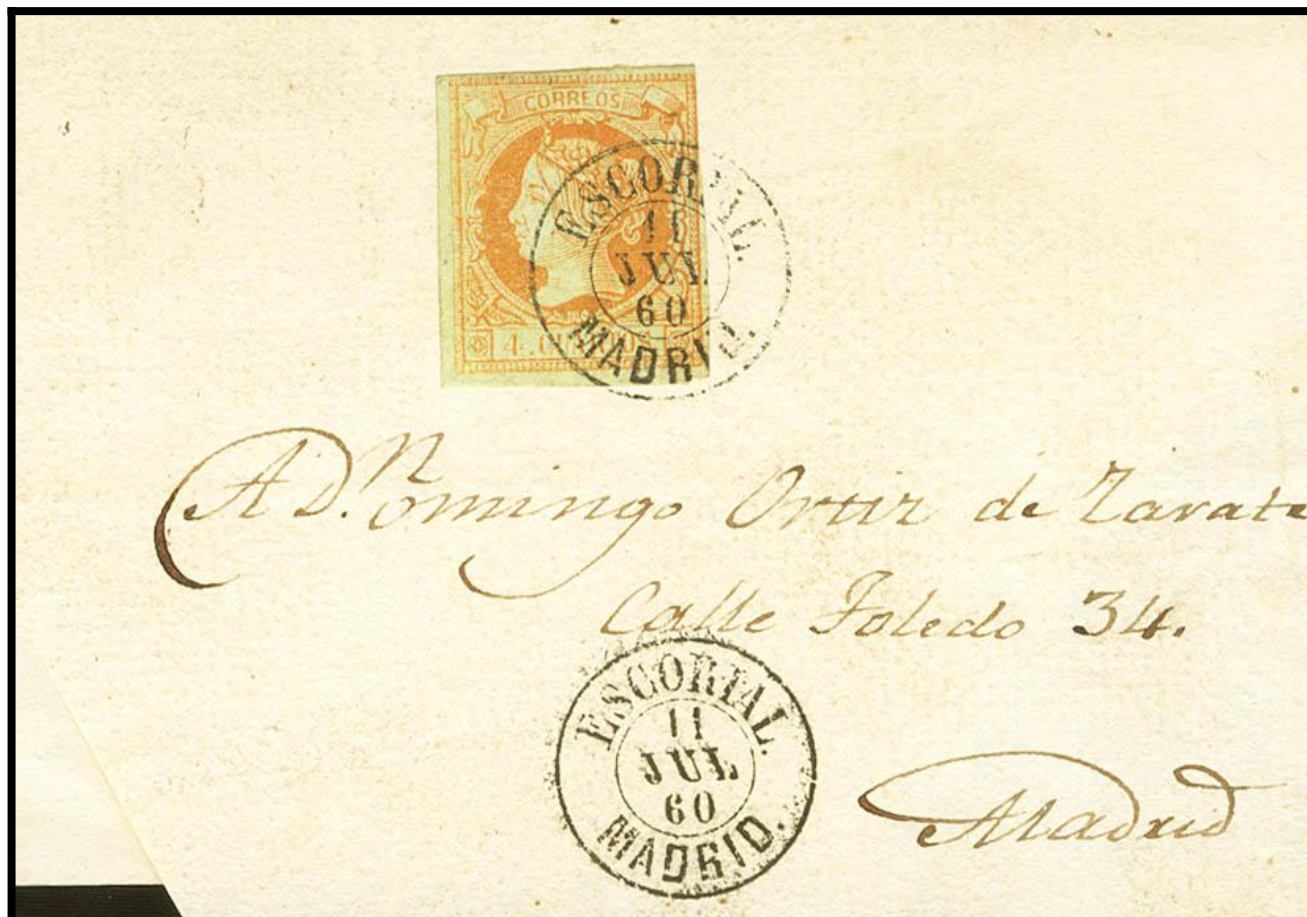 CORREOS
ESCORIAL.
11
JUL
60
MADRID.
A D.n Domingo Ortiz de Zarate
Calle Toledo 34.
ESCORIAL.
11
JUL
60
MADRID.
Madrid